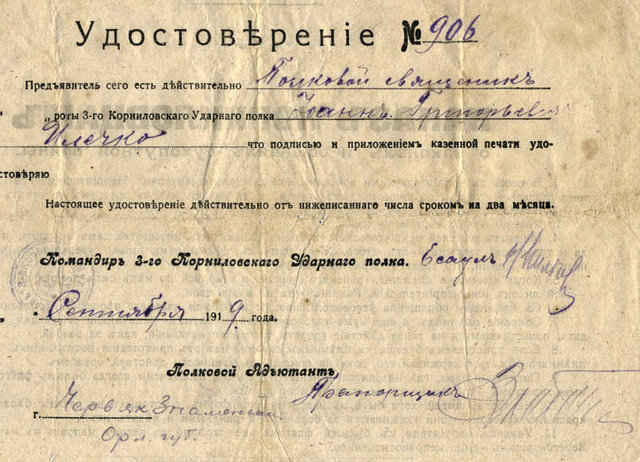 Удостовѣренiе № 906
Предъявитель сего есть дѣйствительно Полковой священникъ
„ роты 3-го Корниловскаго Ударнаго полка Iоаннъ Григорьев
Илечко что подписью и приложенiемъ казенной печати удо-
стовѣряю
Настоящее удостовѣренiе дѣйствительно отъ нижеписаннаго числа срокомъ на два мѣсяца.
Командиръ 3-го Корниловскаго Ударнаго полка. Есаулъ
„ Сентября 1919 года.
Полковой Адъютантъ
Прапорщикъ
г.
Орл. губ.